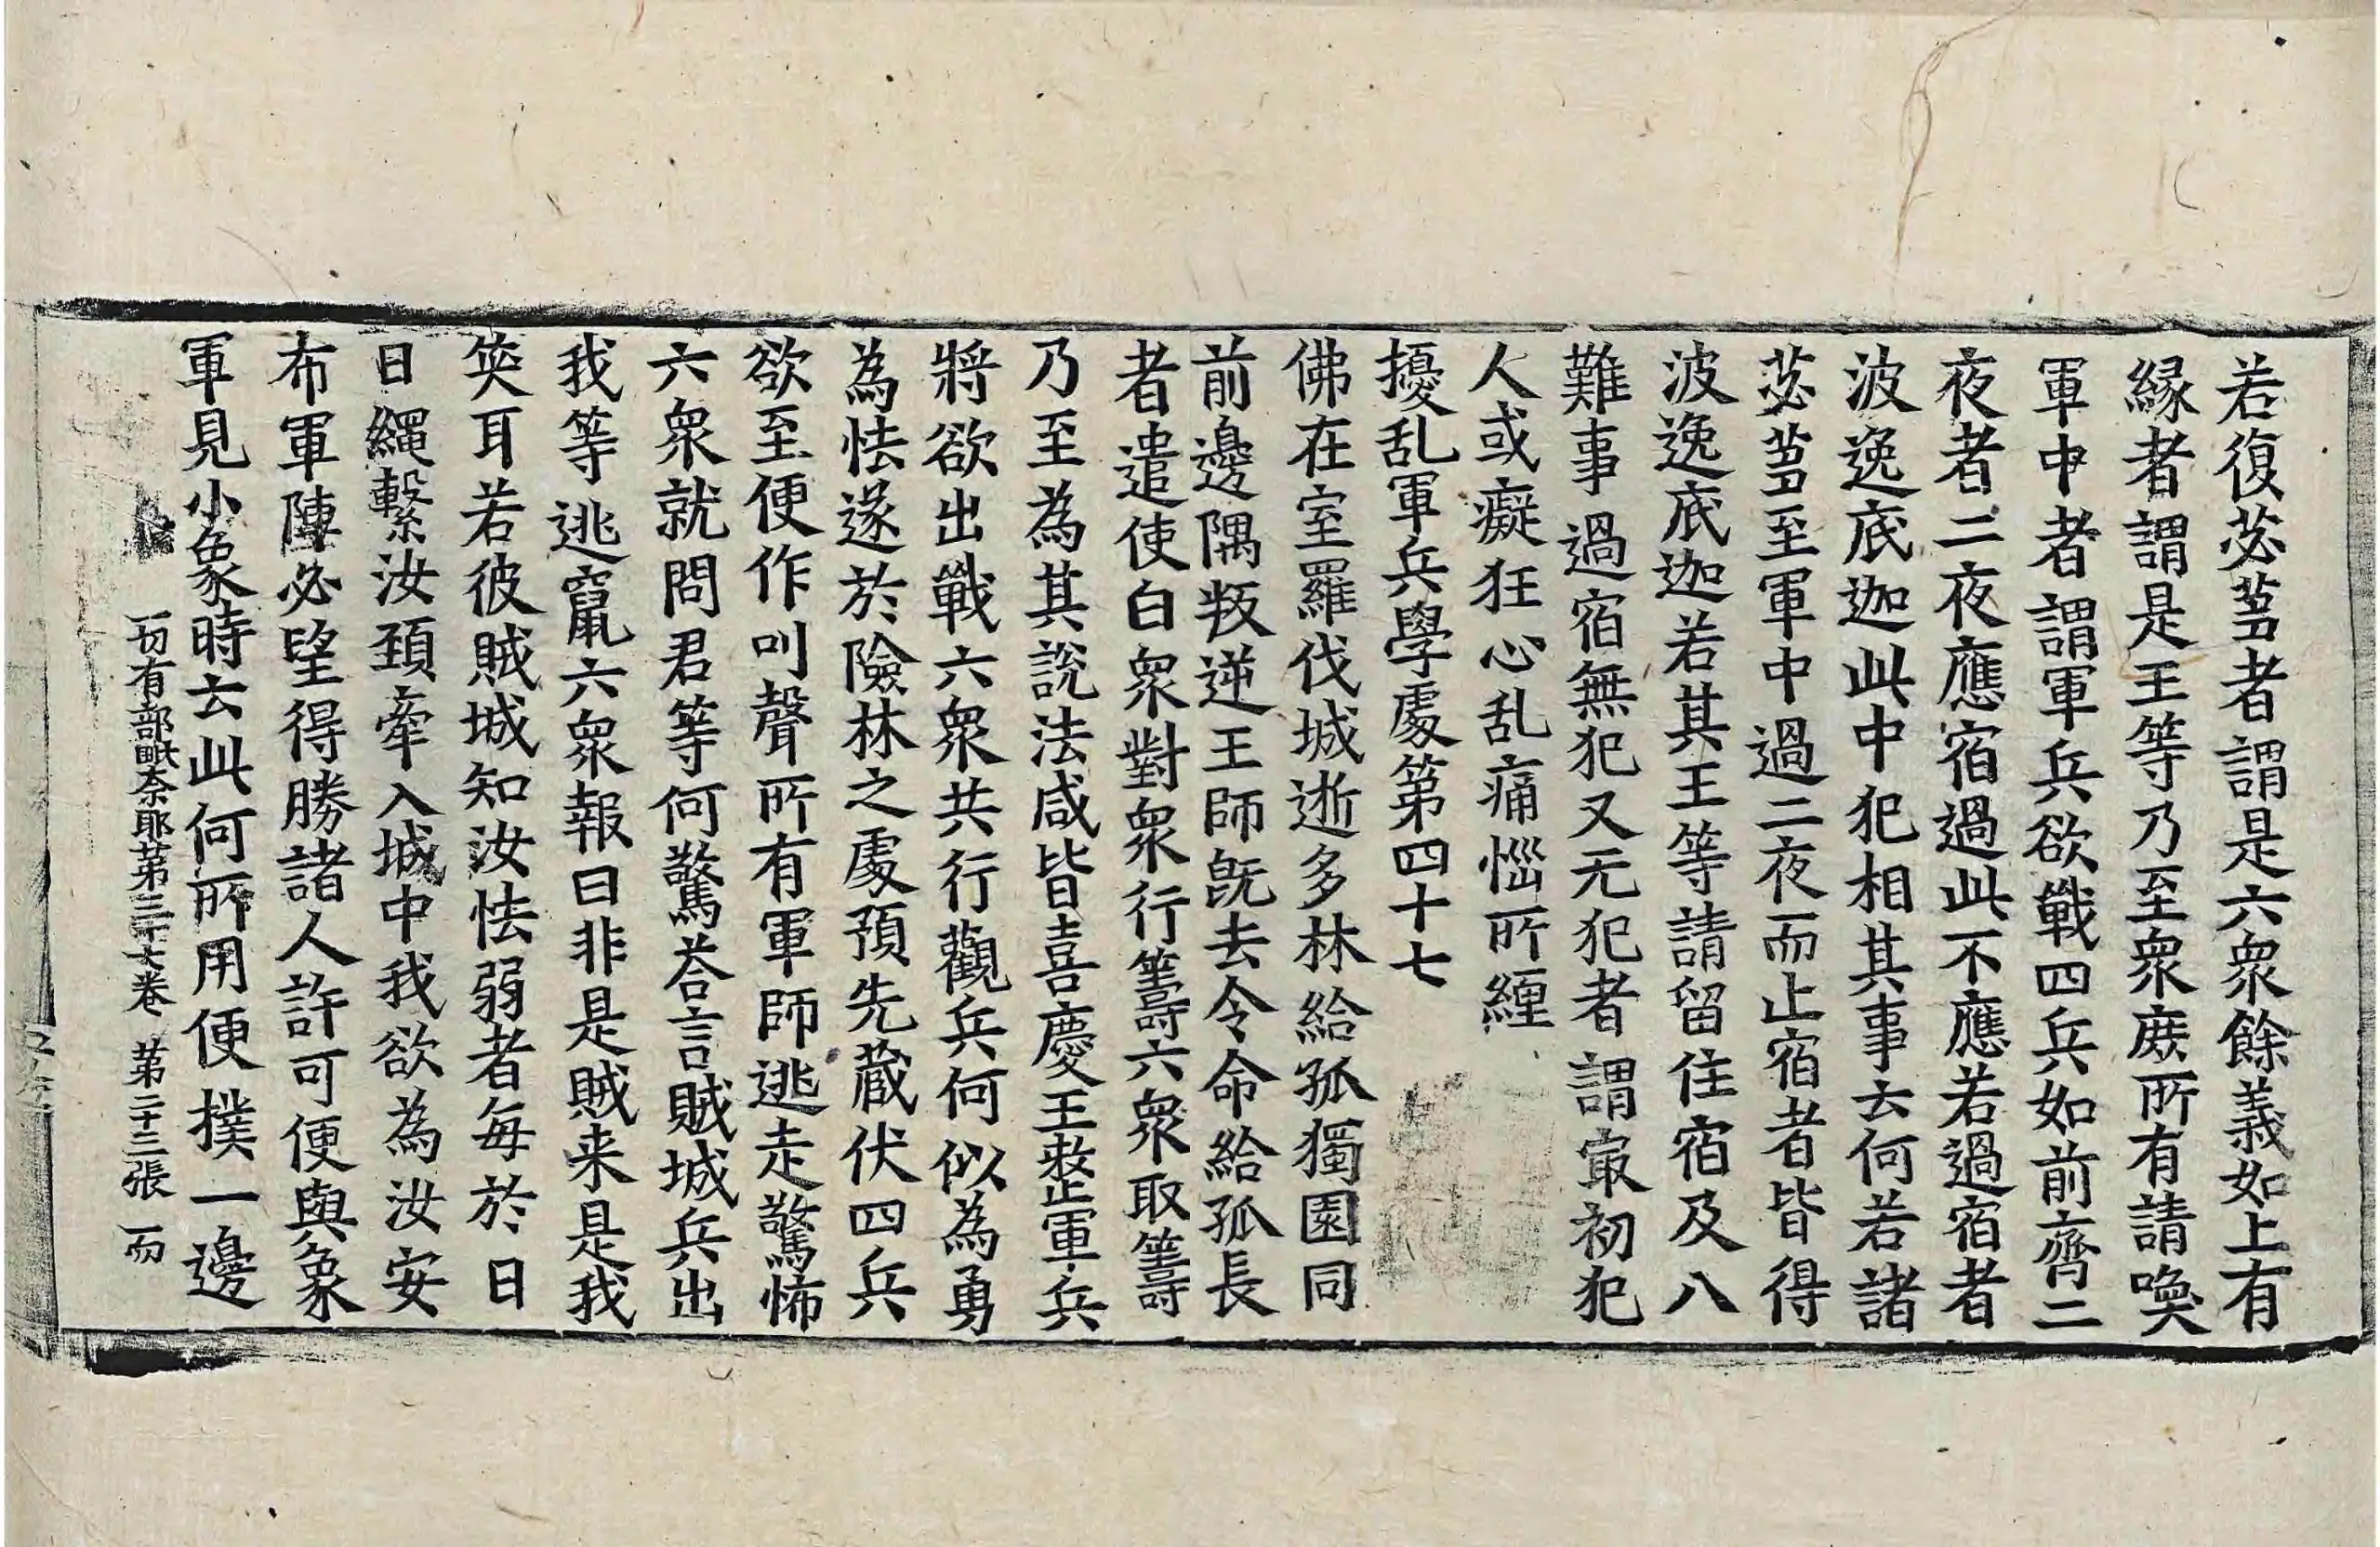 若復苾芻者謂是六衆餘義如上有
縁者謂是王等乃至衆庻所有請喚
軍中者謂軍兵欲戰四兵如前齊二
夜者二夜應宿過此不應若過宿者
波逸底迦此中犯相其事去何若諸
苾芻至軍中過二夜而止宿者皆得
波逸底迦若其王等請留住宿及八
難事過宿無犯又无犯者謂㝡初犯
人或癡狂心乱痛惱所纏
擾乱軍兵學處第四十七
佛在室羅伐城逝多林給孤獨園同
前邊隅叛逆王師旣去令命給孤長
者遣使白衆對衆行籌六衆取籌
乃至為其說法咸皆喜慶王敎㱏軍兵
將欲出戰六衆共行觀兵何似為勇
為怯遂於險林之處預先藏伏四兵
欲至便作叫聲所有軍師逃走驚怖
六衆就問君等何驚荅言賊城兵出
我等逃竄六衆報曰非是賊来是我
筞耳若彼賊城知汝怯弱者每於日
日繩繫汝頚牽入城中我欲為汝安
布軍陣必望得勝諸人許可便與象
軍見小象時去此何所用便撲一邊
一切有部毗奈耶第三十七卷 第二十三張 而